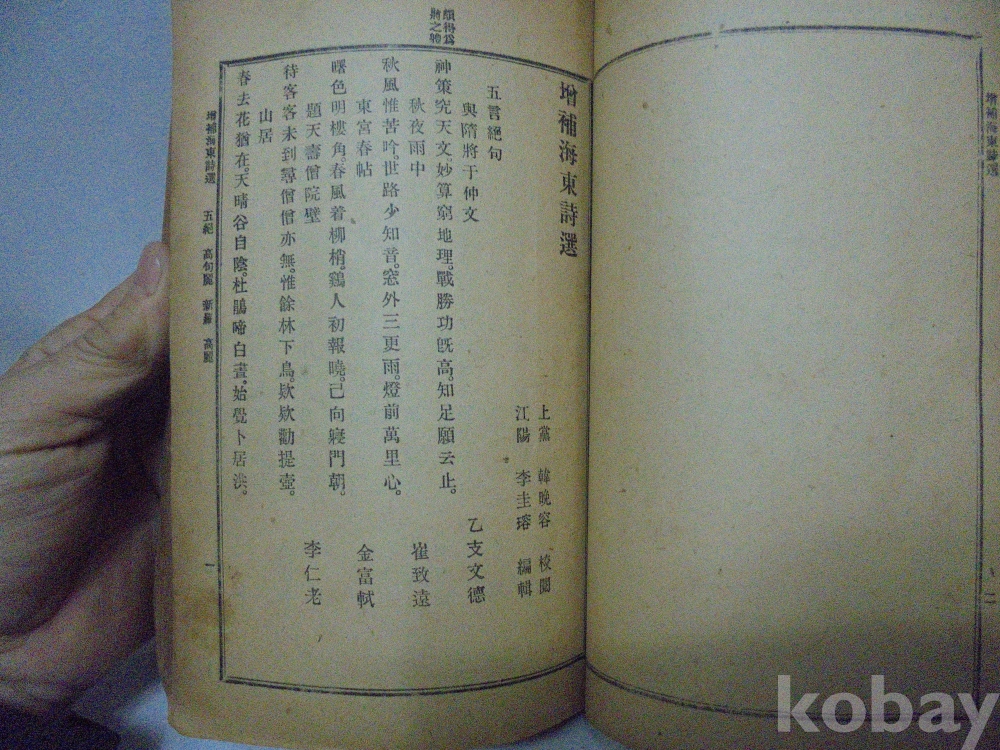 增補海東詩選
上黨 韓晩容 校閱
江陽 李圭瑢 編輯
五言絕句
與隋將于仲文
乙支文德
神策究天文。妙算窮地理。戰勝功旣高。知足願云止。
秋夜雨中
崔致遠
秋風惟苦吟。世路少知音。窓外三更雨。燈前萬里心。
東宮春帖
金富軾
曙色明樓角。春風着柳梢。鷄人初報曉。已向寢門朝。
題天壽僧院壁
李仁老
待客客未到尋僧僧亦無。惟餘林下鳥。欵欵勸提壺。
山居
春去花猶在。天晴谷自陰。杜鵑啼白晝。始覺卜居深。
增補海東詩選 五絕 高句麗 新羅 高麗 一
增補海東詩選
二
kobay